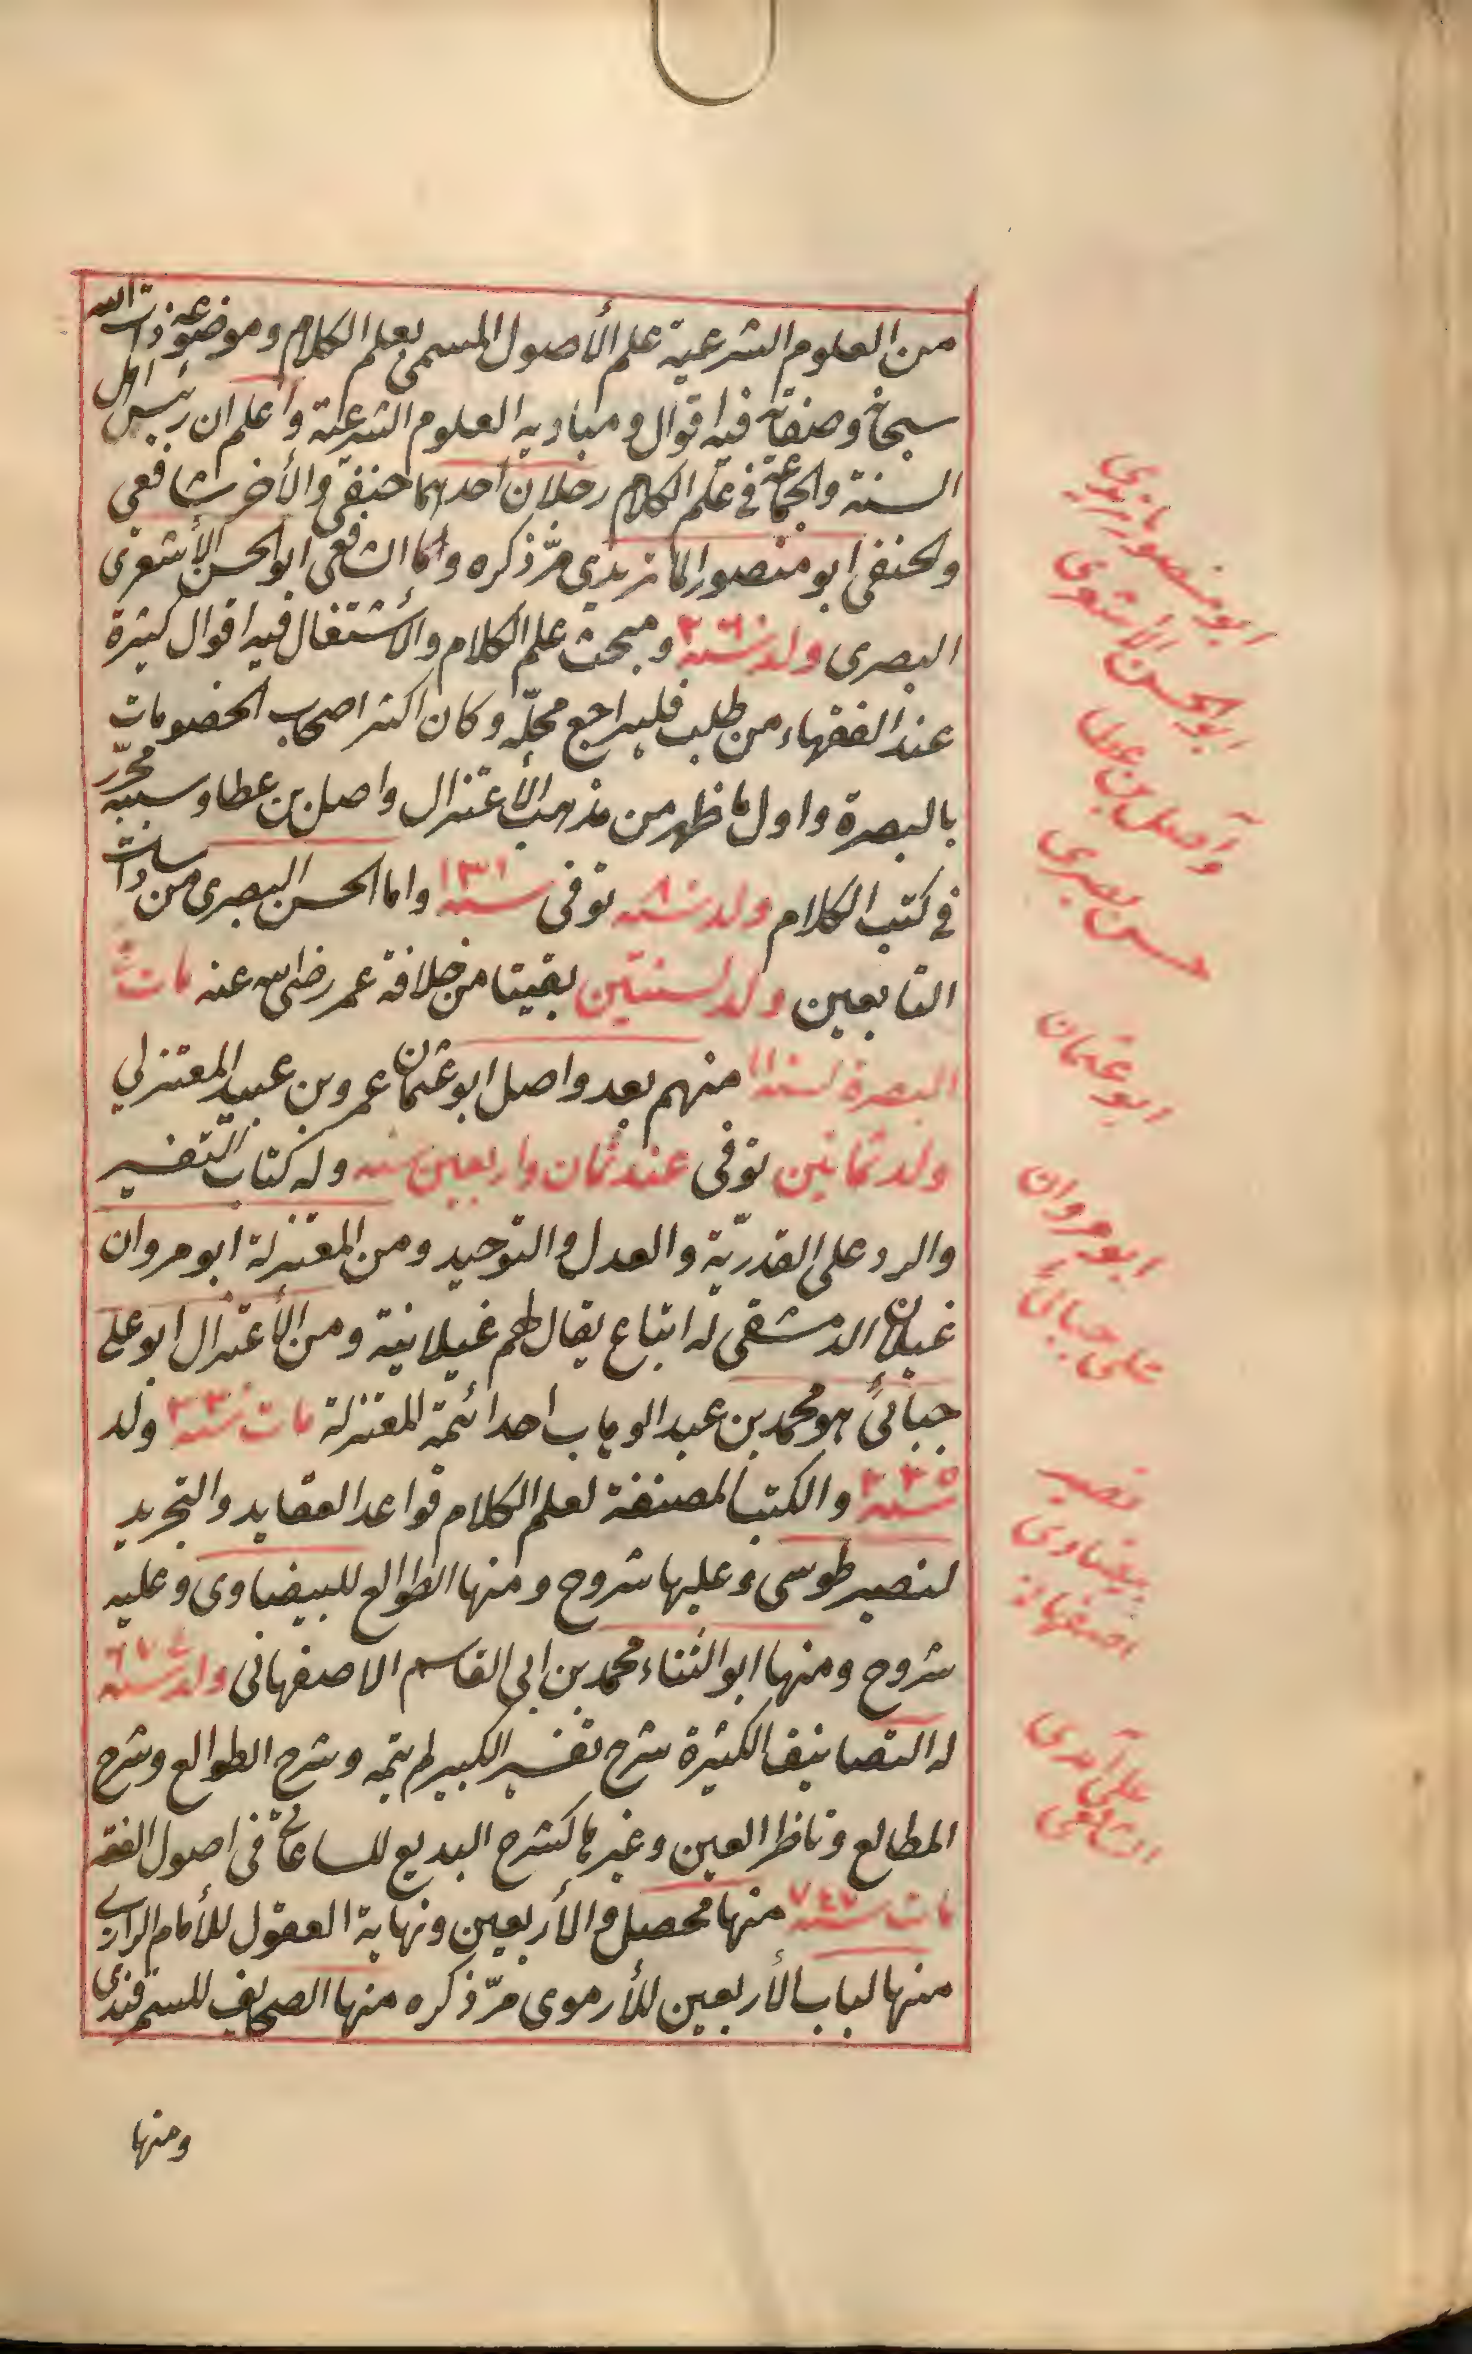 من العلوم الشرعية علم الأصول المسمى بعلم الكلام وموضوعه ذات الله
سبحانه وصفاته فيه اقوال ومباديه العلوم الشرعية وأعلم ان رئيس اهل
السنة والجماعة في علم الكلام رجلان احدهما حنفى والأخر شافعى
والحنفى ابو منصور الماتريدي مرّ ذكره واما الشافعى ابو الحسن الأشعرى
البصرى ولد سنة ٢٦٠ ومبحث علم الكلام والأشتغال فيه اقوال كثيرة
عند الفقهاء من طلب فليراجع محلّه وكان اكثر اصحاب الخصومات
بالبصرة واول ما ظهر من مذهب الأعتزال واصل بن عطا وسببه محرّر
فى كتب الكلام ولد سنة ٨٠ توفى سنة ١٣١ واما الحسن البصرى من سادات
التابعين ولد لسنتين بقيتا من خلافة عمر رضى الله عنه مات
البصرة سنة منهم بعد واصل ابو عثمان عمرو بن عبيد المعتزلي
ولد ثمانين توفى عند ثمان واربعين سنه وله كتاب التفسير
والرد على القدريّة والعدل والتوحيد ومن المعتزلة ابو مروان
غيلان الدمشقى له اتباع يقال لهم غيلانية ومن الأعتزال ابو على
جبائى هو محمد بن عبد الوهاب احد ائمة المعتزلة مات سنة ولد
سنة ٢٣٥ والكتب المصنفة لعلم الكلام قواعد العقايد والتجريد
لنصير طوسى وعليها شروح ومنها الطوالع للبيضاوى وعليه
شروح ومنها ابو الثناء محمد بن ابي القاسم الاصفهانى ولد سنة
له التصانيف الكثيرة شرح تفسير الكبير لم يتمه وشرح الطوالع وشرح
المطالع وناظر العين وغيرها كشرح البديع للساعاتى فى اصول الفقه
مات سنة ٧٤٧ منها محصل والأربعين ونهاية العقول للأمام الرازى
منها لباب الأربعين للأرموى مرّ ذكره منها الصحايف للسمرقندى
ومنها
ابو منصور ماتريدي
ابو الحسن الاشعرى
واصل بن عطا
حسن بصرى
ابو عثمان
ابو مروان
على جبائى
نصير
بيضاوى
اصفهانى
على آمدى
الشافعى